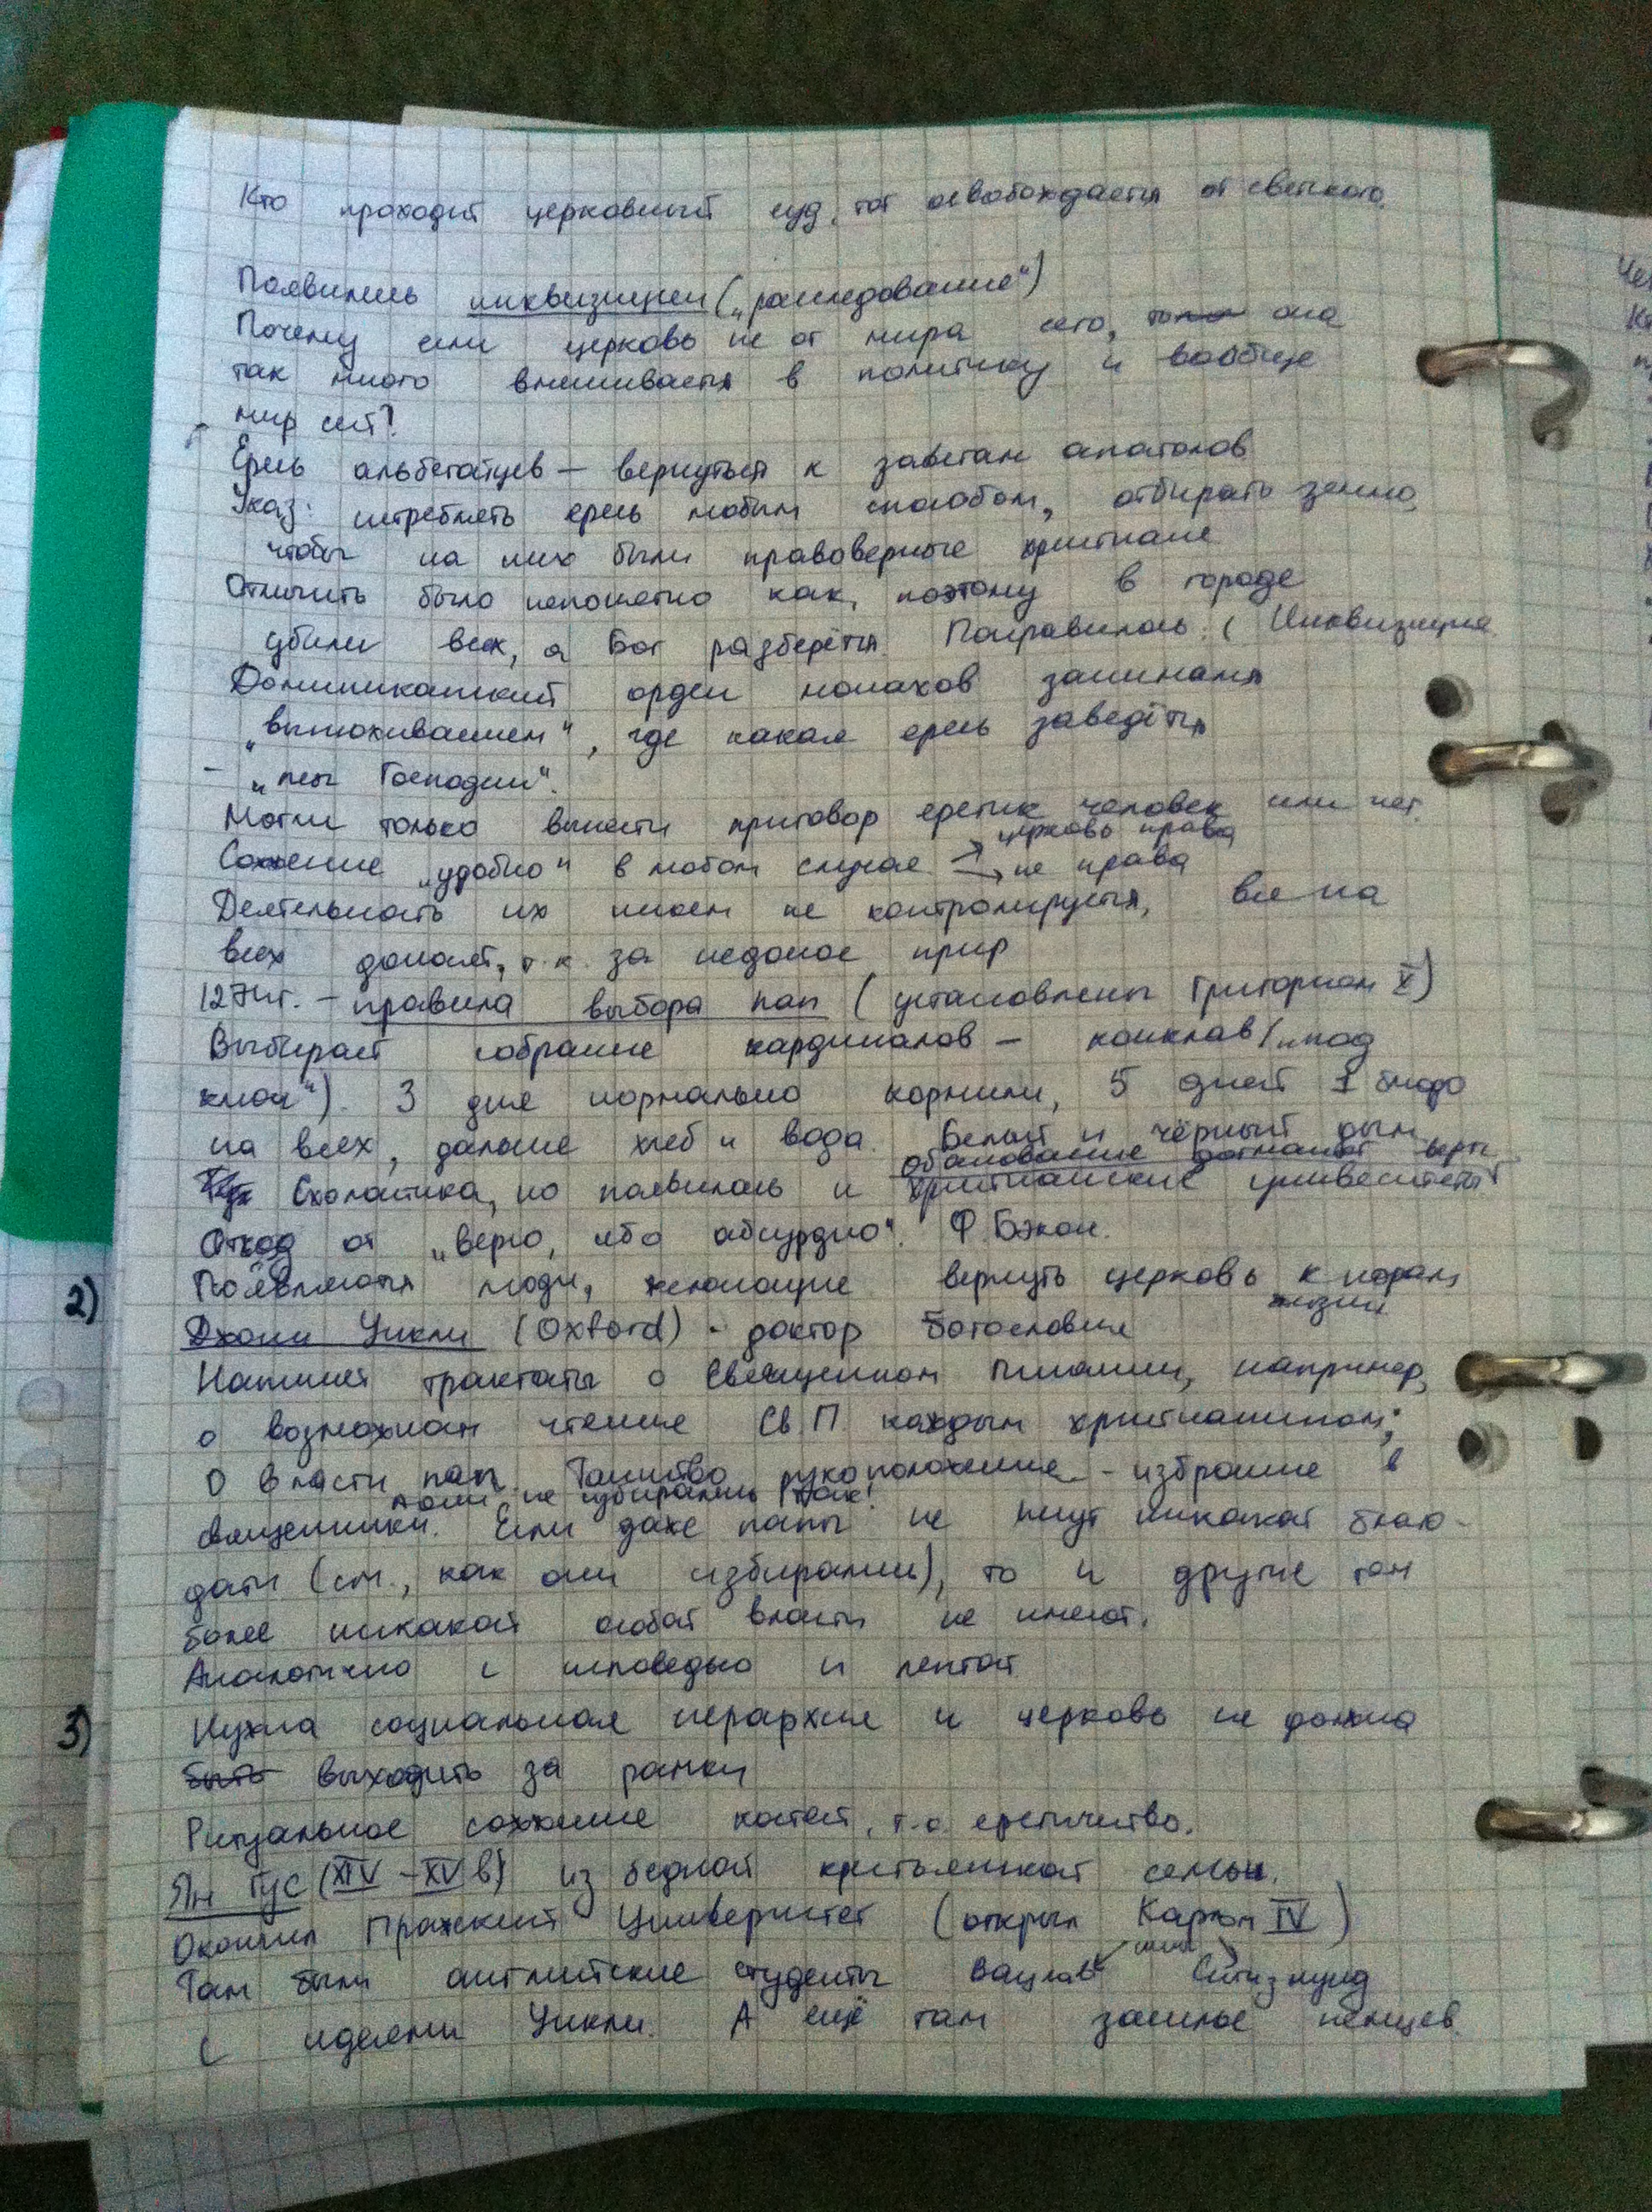 Кто проходит церковный суд, тот освобождается от светского.
Появились инквизиции („расследование“)
Почему если церковь не от мира сего, она
так много вмешивается в политику и вообще
мир сей?
Ересь альбегайцев — вернуться к заветам апостолов
Указ: истреблять ересь любым способом, отбирать землю,
чтобы на них были правоверные христиане
Отличить было непонятно как, поэтому в городе
убили всех, а Бог разберётся. Понравилось :( Инквизиция
Доминиканский орден монахов занимался
„вынюхиванием“, где какая ересь заведётся
– „псы Господни“.
Могли только вынести приговор еретик человек или нет.
Сожжение „удобно“ в любом случае → церковь права
→ не права
Деятельность их никем не контролируется, все на
всех доносят, т.к. за недонос
127 г. – правила выбора пап (установлены Григорием X)
Выбирает собрание кардиналов – конклав („под
ключ“). 3 дня нормально кормили, 5 дней 1 блюдо
на всех, дальше хлеб и вода. Белый и чёрный дым.
обоснование догматов веры
Схоластика, но появилась и христианские университеты
Отход от „верю, ибо абсурдно“. Ф. Бэкон.
Появляются люди, желающие вернуть церковь к нормам
жизни
2)
Джони Уикли (Oxford) - доктор богословия
Напишет трактаты о Священном Писании, например,
о возможном чтение Св. П. каждым христианином;
О власти пап. Таинство рукоположения – избрание в
Апош не избирались так!
священники. Если даже папы не несут никакой благо-
дати (см., как они избирались), то и другие тем
более никакой особой власти не имеют.
Аналогично с исповедью и лептой
3)
Нужна социальная иерархия и церковь не должна
быть выходить за рамки
Ритуальное сожжение костей, т.о. еретичество.
Ян Гус (XIV – XV в) из бедной крестьянской семьи.
Окончил Пражский Университет (открыл Карлом IV)
сыны
Там были английские студенты Вацлав Сигизмунд
с идеями Уикли. А ещё там засилье немцев.